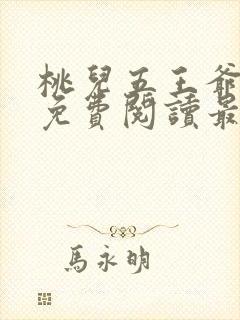 桃兒五王爺
免費閱讀最
馬永明